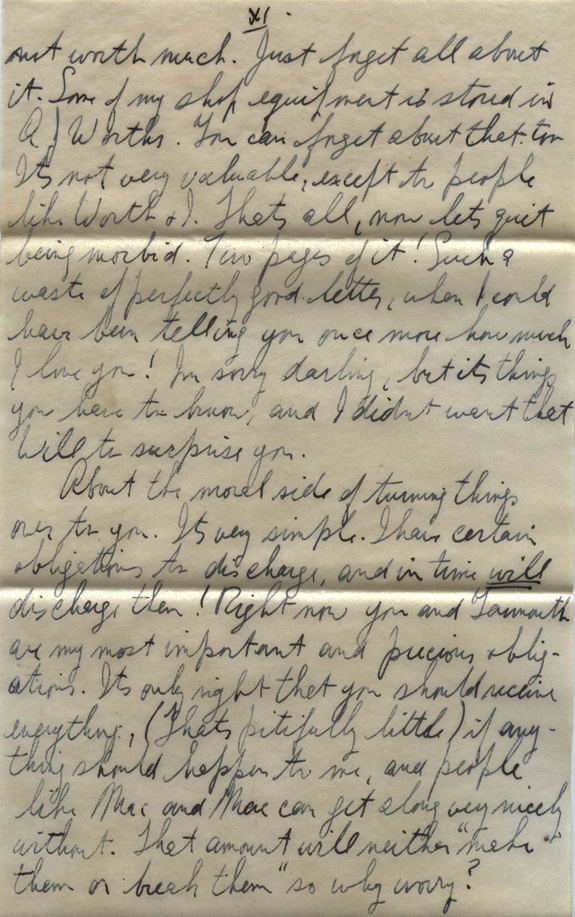 XI.
not worth much. Just forget all about
it. Some of my shop equipment is stored in
A.J Worths. You can forget about that too
Its not very valuable, except to people
like Worth & I. Thats all, now lets quit
being morbid. Two pages of it! Such a
waste of perfectly good letter, when I could
have been telling you once more how much
I love you! Im sorry darling, but its things
you have to know, and I didnt want that
Will to surprise you.
About the moral side of turning things
over to you. Its very simple. I have certain
obligations to discharge, and in time will
discharge them! Right now you and
are my most important and precious oblig-
ations. Its only right that you should receive
everything, (Thats pitifully little) if any-
thing should happen to me, and people
like Mac and Mae can get along very nicely
without. That amount will neither "make
them or break them" so why worry?